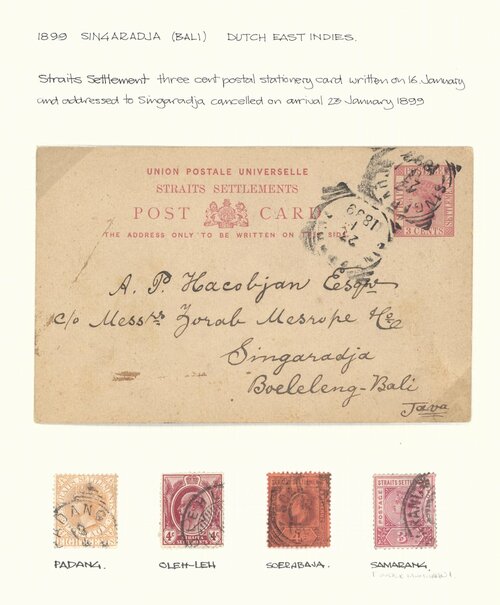 1899 SINGARADJA (BALI) DUTCH EAST INDIES.
Straits Settlement three cent postal stationery card written on 16 January
and addressed to Singaradja cancelled on arrival 28 January 1899
UNION POSTALE UNIVERSELLE
STRAITS SETTLEMENTS
POST CARD
THE ADDRESS ONLY TO BE WRITTEN ON SIDE
3 CENTS
1899
A. P. Hacobjan Esqre
c/o Messrs Zorab Mesrope &
Singaradja
Boeleleng-Bali
Java
STRAITS SETTLEMENTS
PADANG
4c 4c
STRAITS
SETTLEMENTS
STRAITS SETTLEMENTS
PADANG.
OLEH-LEH
SOERABAJA.
SAMARANG.